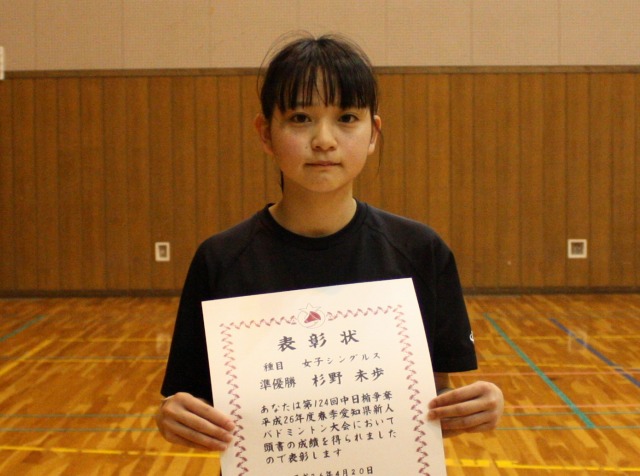 表彰状
種目 女子シングルス
準優勝 杉野 未歩
あなたは第124回中日杯争奪
平成26年度春季愛知県新人
バドミントン大会において
頭書の成績を得られました
ので表彰します
26年4月20日